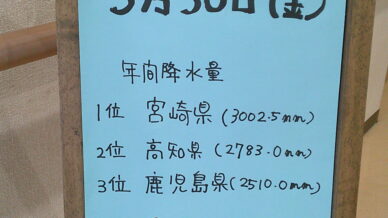 5月30日(金)
年間降水量
1位 宮崎県(3002.5mm)
2位 高知県(2783.0mm)
3位 鹿児島県(2510.0mm)